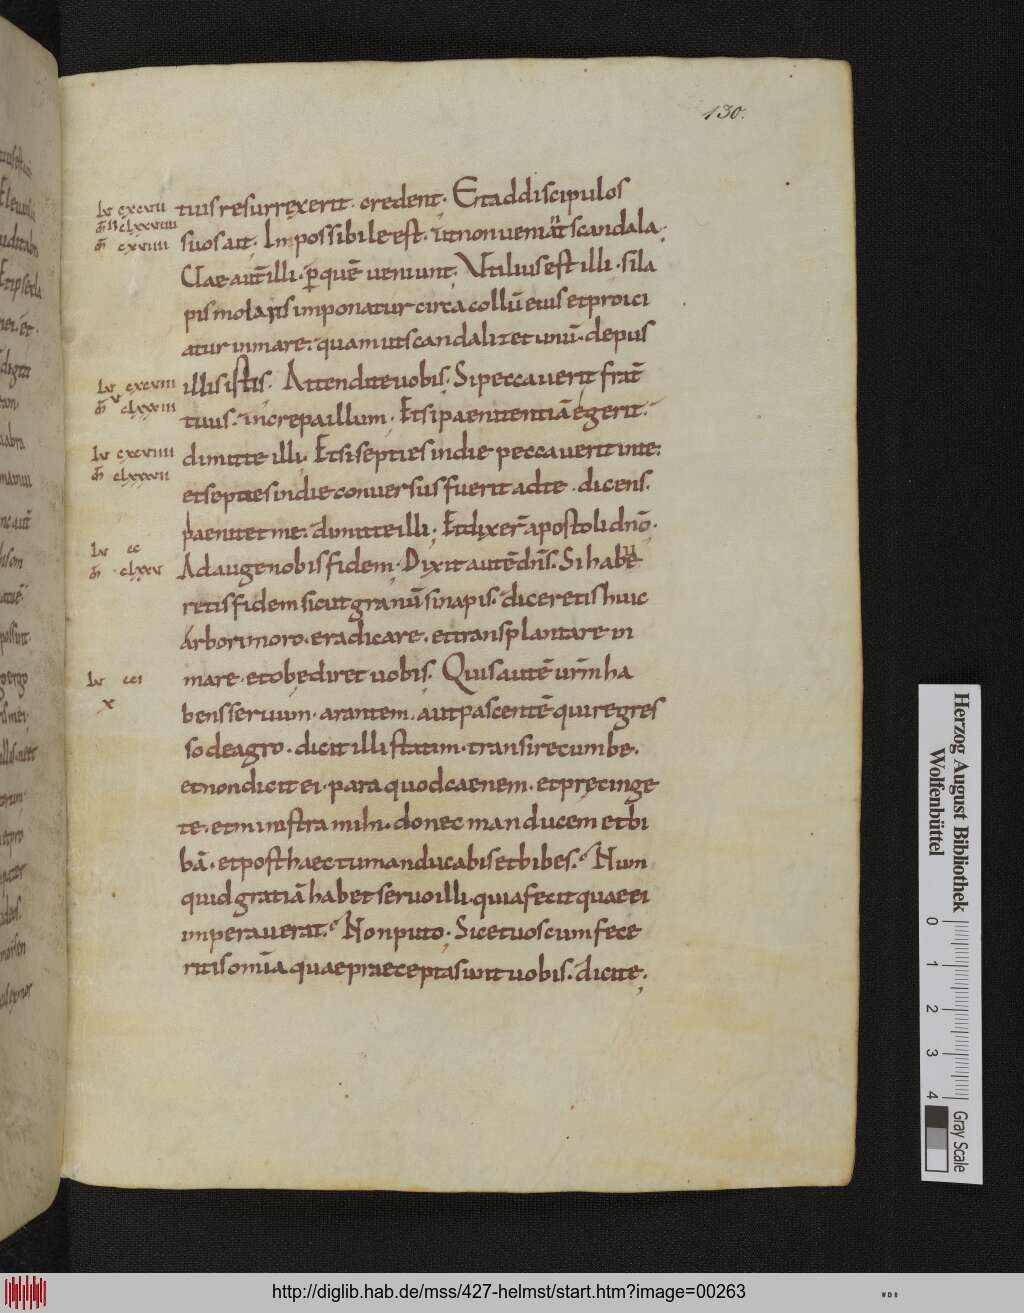 130.
tuis resurrexerit. credent. Et ad discipulos
suos ait. Inpossibile est. ut non veniat scandala.
Uae autē illi. p̱ quē veniunt. Utilius est illi. si la
pis molaris imponatur circa collū eius et proici
atur in mare. quam ut scandalizet unū. de pus
illis istis. Attendite vobis. Si peccaverit frat̄
tuus. increpa illum. Et si paenitentiā egerit.
dimitte illi. Et si septies in die peccaverit in te.
et septies in die conversus fuerit ad te. dicens.
paenitet me. dimitte illi. Et dixer̄ apostoli dn̄o.
Adauge nobis fidem. Dixit autē dn̄s. Si habue
retis fidem sicut granū sinapis. diceretis huic
arbori moro. eradicare. et transplantare in
mare. et obediret vobis. Quis autē urm̄ ha
bens servum. arantem. aut pascentē qui regres
so de agro. dicit illi statim. transi recumbe.
et non dicit ei. para quod caenem. et precinge
te. et ministra mihi. donec manducem et bi
bā. et post haec tu manducabis et bibes. Num
quid gratiā habet servo illi. quia fecit quae ei
imperaverat. Non puto. Sic et vos cum fece
ritis omīa quae praecepta sunt vobis. dicite.
Lu cxcvii
cxviiii
Lu cxcviii
Lu cxcviiii
clxxxvii
Lu cc
clxxv
Lu cci
x
Herzog August Bibliothek
Wolfenbüttel
0 1 2 3 4
Gray Scale
http://diglib.hab.de/mss/427-helmst/start.htm?image=00263